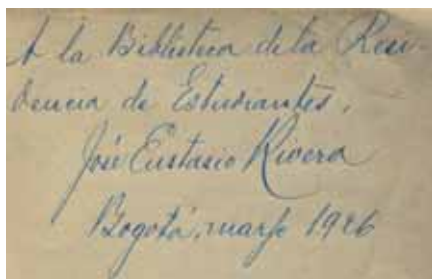 A la Biblioteca de la Resi-
dencia de Estudiantes,
José Eustasio Rivera
Bogotá, 1926